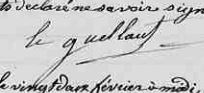 déclaré ne savoir sign
le guellaut
le vingt deux février à midi